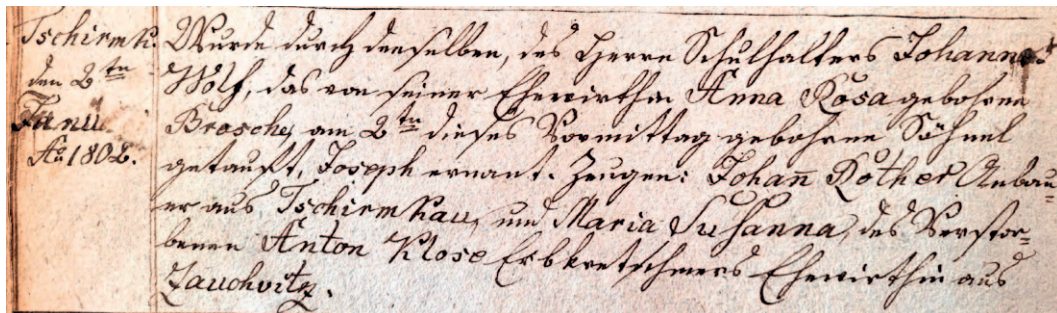 Tschirmk.
den 2ten
Janu.
Ao 1802.
Wurde durch denselben, des Herrn Schulhalters Johannes
Wolf, das von seiner Ehewirthin Anna Rosa gebohrne
Brosche, am 2ten dieses Vormittag gebohrne Söhnel
getauft, Joseph ernant. Zeugen: Johan̄ Rother Anbau=
er aus Tschirmkau, und Maria Susanna, des Verstor=
benen Anton Klose Erbkretschmers Ehewirthin aus
Zauchvitz.